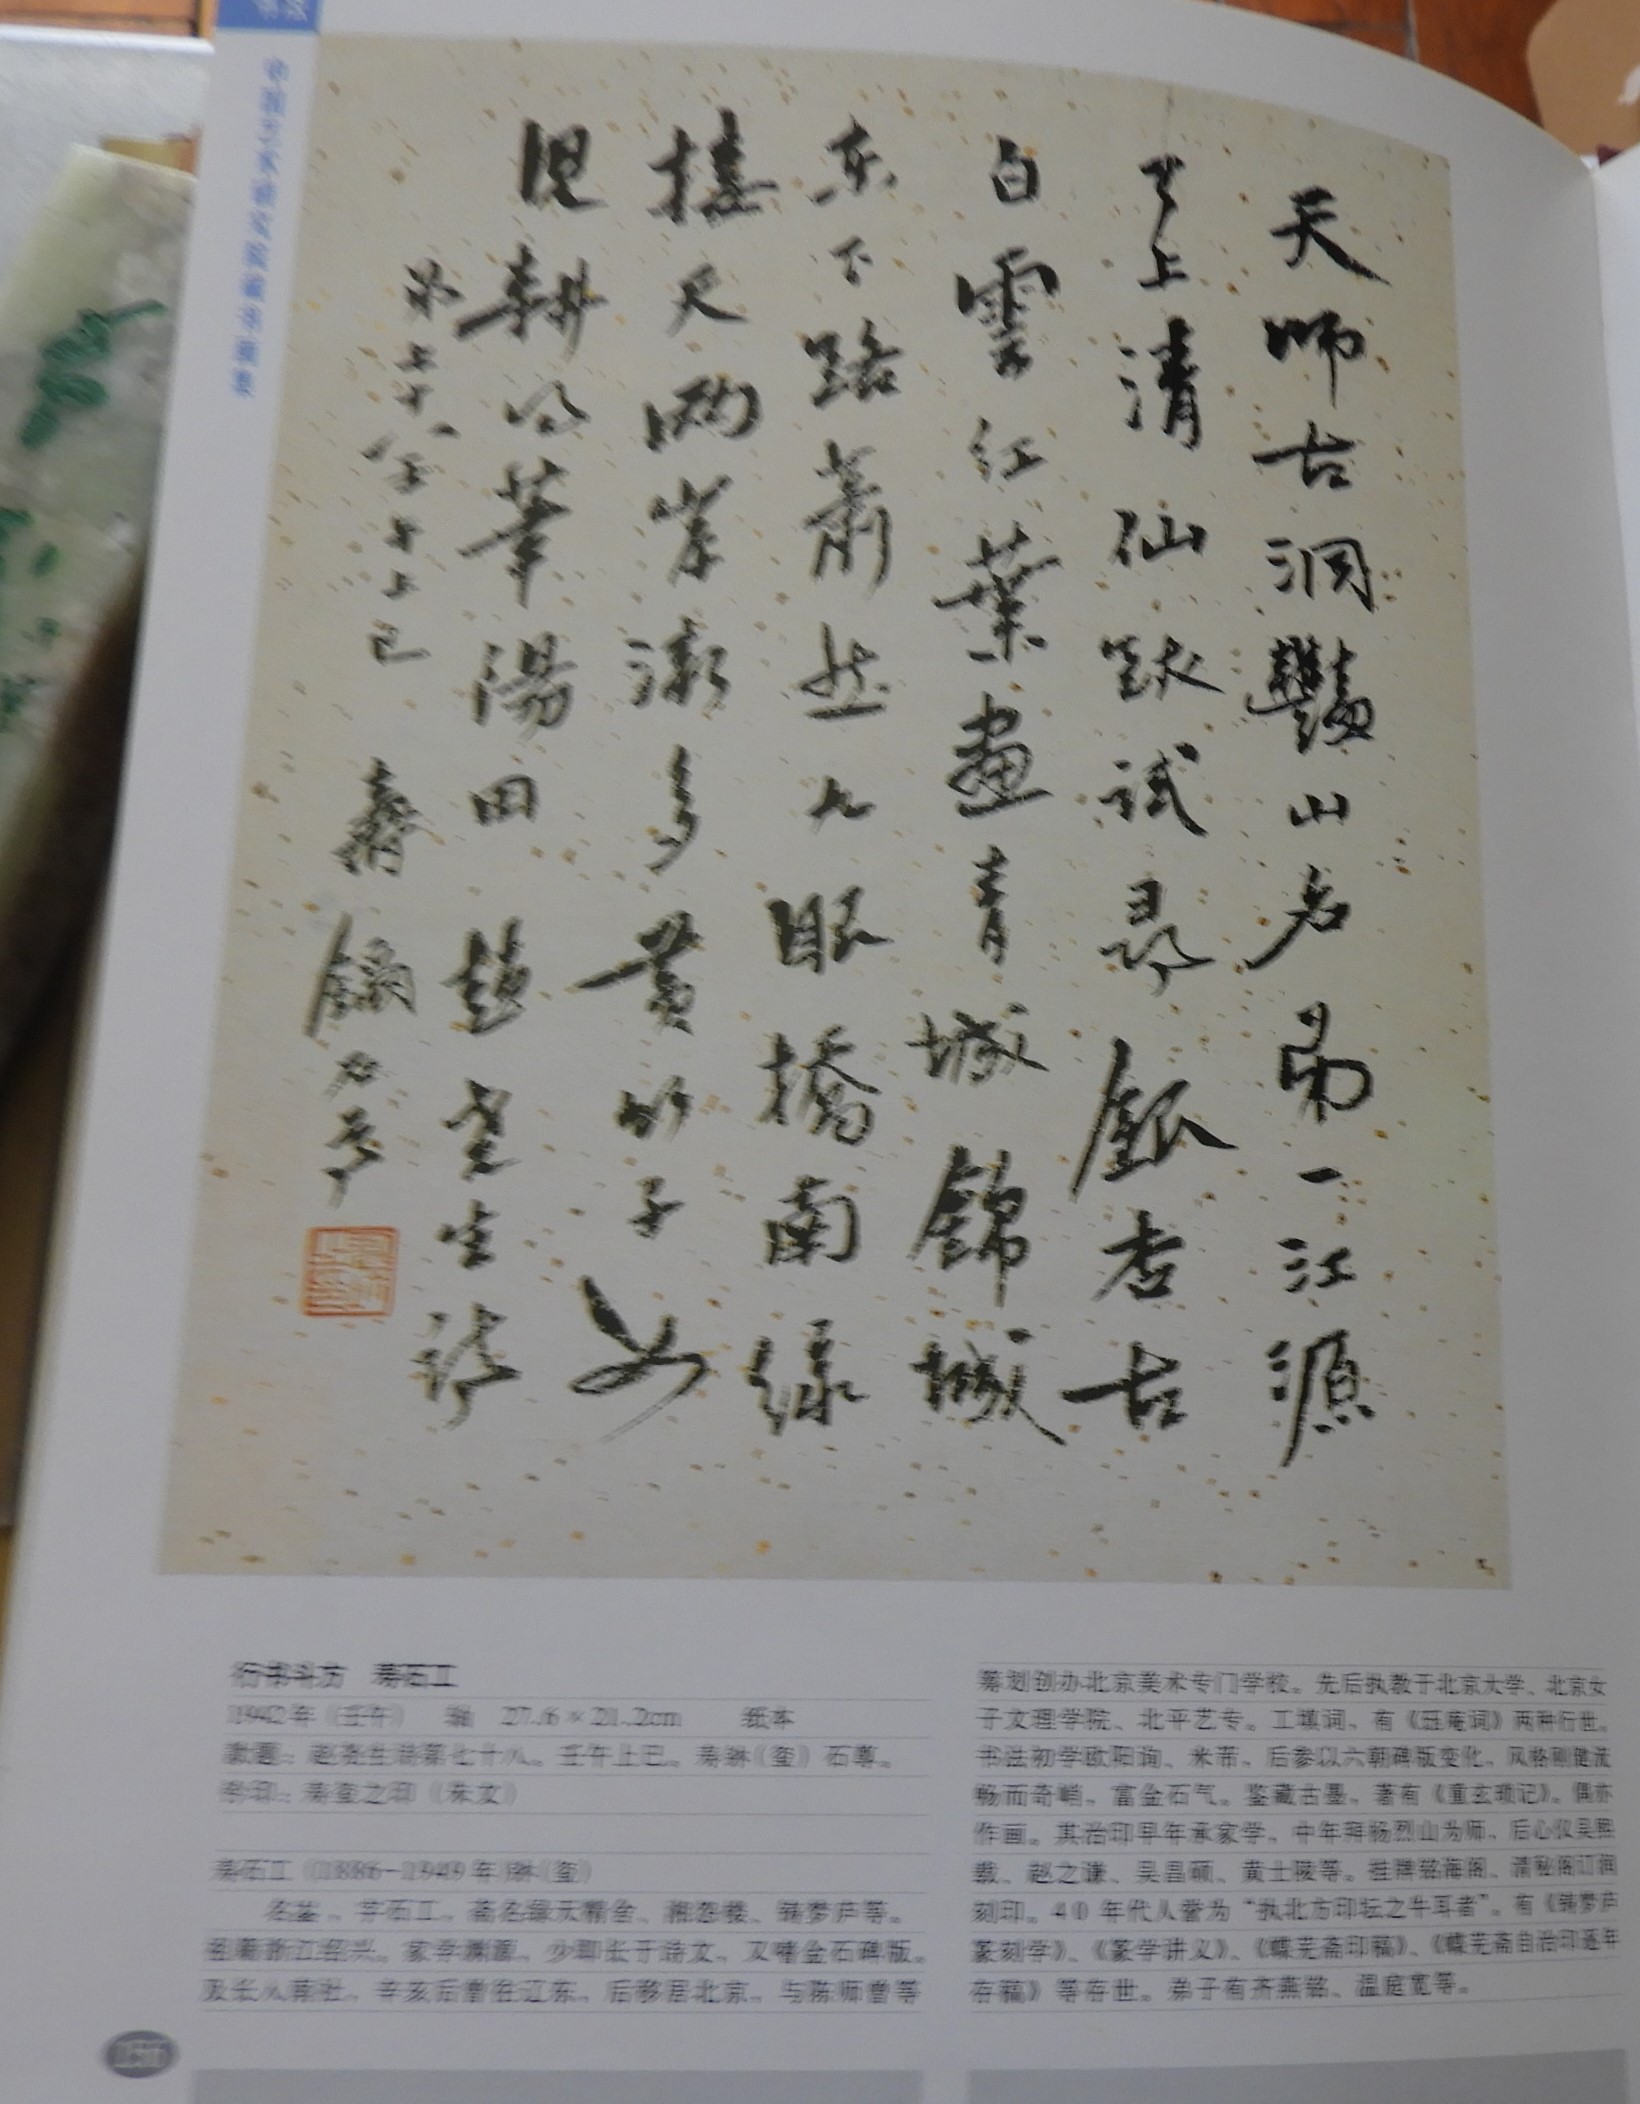 中国艺术研究院藏书画集
天师古洞艳山名第一江源
上清仙
试寻
考古
白云红叶画青城锦城
东下路萧然九眼桥南绿
接天两岸渐多黄竹子
儿耕
阳田 赵尧生诗
第七十八 壬午上巳 寿
行书斗方 寿石工
1942年（壬午） 轴 27.6×21.2cm 纸本
款题：赵尧生诗第七十八。壬午上巳。寿鉨（玺）石尊。
钤印：寿玺之印（朱文）
寿石工（1886-1949年）鉨（玺）
名玺、字石工，斋名缘天精舍、湘怨楼、铸梦庐等。
祖籍浙江绍兴。家学渊源，少即长于诗文，又嗜金石碑版。
及长入南社，辛亥后曾往辽东，后移居北京，与陈师曾等
筹划创办北京美术专门学校。先后执教于北京大学、北京女
子文理学院、北平艺专。工填词，有《珏庵词》两种行世。
书法初学欧阳询、米芾，后参以六朝碑版变化，风格刚健流
畅而奇峭，富金石气。鉴藏古墨，著有《重玄琐记》。偶亦
作画。其治印早年承家学，中年拜杨烈山为师，后心仪吴熙
载、赵之谦、吴昌硕、黄士陵等。挂牌铭海阁、清秘阁订润
刻印。40年代人誉为“执北方印坛之牛耳者”。有《铸梦庐
篆刻学》、《篆学讲义》、《蝶芜斋印稿》、《蝶芜斋自治印逐年
存稿》等存世。弟子有齐燕铭、温庭宽等。